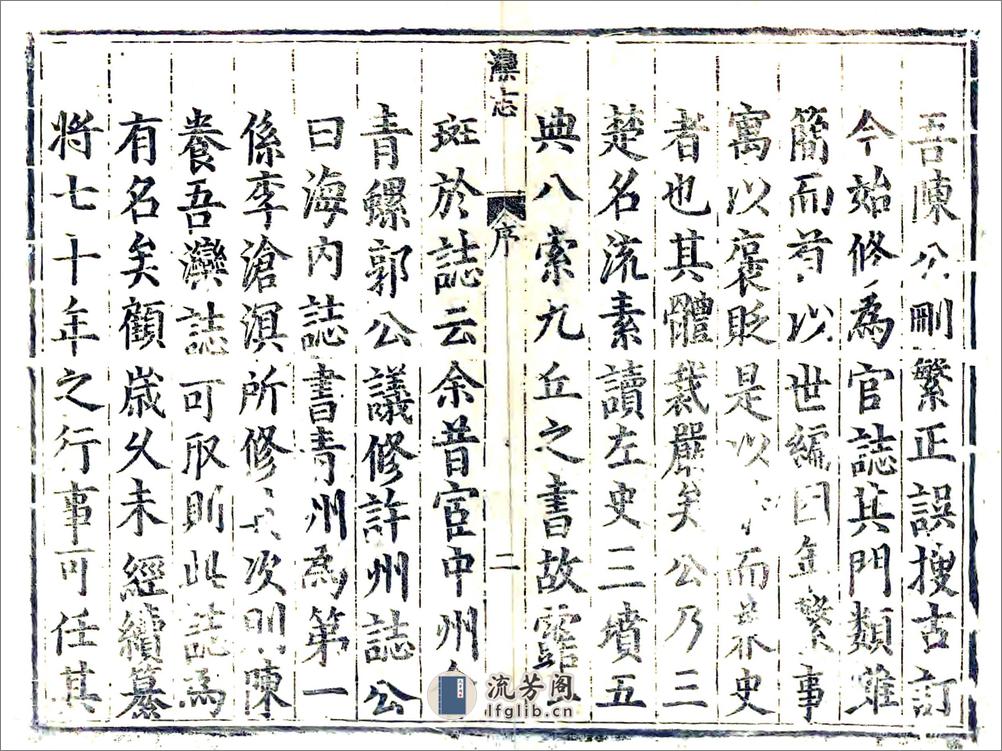 吾陳公刪繁正誤搜古訂
今始修為官誌其門類雖
簡而首以世編因年繫事
寓以褒貶是以而史
者也其體裁嚴矣公乃三
楚名流素讀左史三墳五
典八索九丘之書故露
灤志 序 二
斑於誌云余昔宦中州
青螺郭公議修許州誌公
曰海内誌書青州為第一
係李滄溟所修其次則陳
養吾灤誌可取則此誌為
有名矣顧歲久未經續纂
將七十年之行事可任其
流芳阁
lfglib.cn